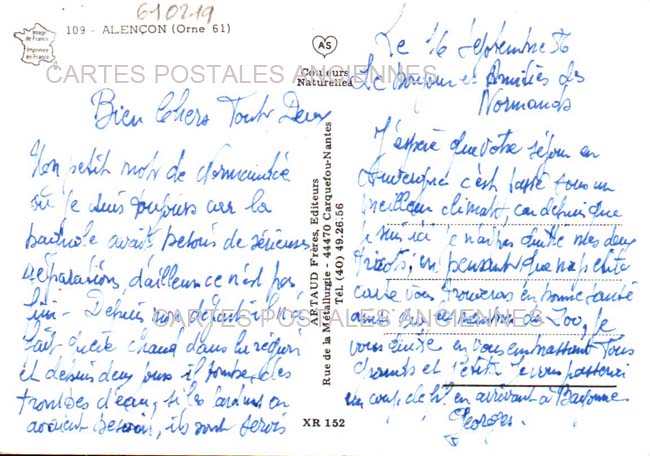 610219
109 - ALENÇON (Orne 61)
Image de France
Imprimée en France
AS
Couleurs
Naturelles
CARTES POSTALES ANCIENNES
Bien Chers Tout Deux
Mon petit mot de Normandie
où je suis toujours car la
avait besoin de sérieuses
réparations, d'ailleurs ce n'est pas
fini - Depuis mon départ il n'a
fait que chaud dans la région
et depuis deux jours il tombe des
trombes d'eau, si les
avaient besoin, ils sont servis
ARTAUD Frères, Editeurs
Rue de la Métallurgie - 44470 Carquefou-Nantes
Tél. (40) 49.26.56
XR 152
Le 16 Septembre 86
Le Bonjour et Amitiés des
Normands
J'espère que votre séjour en
Auvergne c'est passé sous un
meilleur climat, car depuis que
je suis ici je n'ai pas quitté mes deux
en pensant que ma petite
carte vous trouveras en bonne santé
ainsi que
vous quitte en vous embrassant Tous
Grands et Petits Je vous passerai
un coup de fil en arrivant à Bayonne
Georges
CARTES POSTALES ANCIENNES